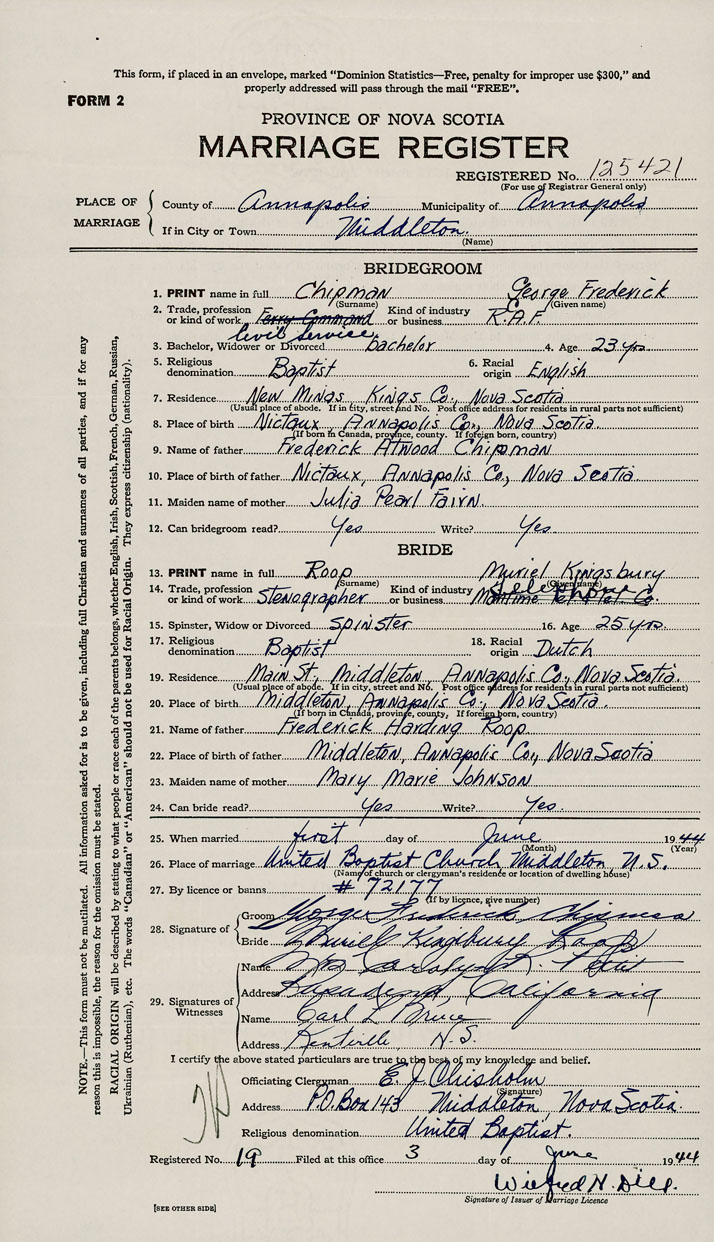 This form, if placed in an envelope, marked "Dominion Statistics—Free, penalty for improper use $300," and
properly addressed will pass through the mail "FREE".
FORM 2
PROVINCE OF NOVA SCOTIA
MARRIAGE REGISTER
REGISTERED No. 125421
(For use of Registrar General only)
PLACE OF MARRIAGE
County of Annapolis Municipality of Annapolis
If in City or Town Middleton.
(Name)
BRIDEGROOM
1. PRINT name in full Chipman George Frederick
(Surname) (Given name)
2. Trade, profession or kind of work Ferry Command Kind of industry or business R.A.F.
Civil Service
3. Bachelor, Widower or Divorced bachelor 4. Age 23 yrs.
5. Religious denomination Baptist 6. Racial origin English
7. Residence New Minas Kings Co., Nova Scotia
(Usual place of abode. If in city, street and No. Post office address for residents in rural parts not sufficient)
8. Place of birth Nictaux, Annapolis Co., Nova Scotia.
(If born in Canada, province, county. If foreign born, country)
9. Name of father Frederick Atwood Chipman
10. Place of birth of father Nictaux, Annapolis Co., Nova Scotia.
11. Maiden name of mother Julia Pearl Fairn.
12. Can bridegroom read? Yes Write? Yes.
BRIDE
13. PRINT name in full Roop Muriel Kingsbury
(Surname) (Given name)
14. Trade, profession or kind of work Stenographer Kind of industry or business Maritime Tel & Tel Co.
Telephone
15. Spinster, Widow or Divorced Spinster 16. Age 25 yrs.
17. Religious denomination Baptist 18. Racial origin Dutch
19. Residence Main St., Middleton, Annapolis Co., Nova Scotia.
(Usual place of abode. If in city, street and No. Post office address for residents in rural parts not sufficient)
20. Place of birth Middleton, Annapolis Co., Nova Scotia.
(If born in Canada, province, county, If foreign born, country)
21. Name of father Frederick Harding Roop
22. Place of birth of father Middleton, Annapolis Co., Nova Scotia
23. Maiden name of mother Mary Marie Johnson
24. Can bride read? Yes Write? Yes.
25. When married first day of June 1944
(Month) (Year)
26. Place of marriage United Baptist Church, Middleton, N.S.
(Name of church or clergyman's residence or location of dwelling house)
27. By licence or banns # 72177
(If by licence, give number)
28. Signature of
Groom George Frederick Chipman
Bride Muriel Kingsbury Roop
29. Signatures of Witnesses
Name Mrs Carolyn R. Pettit
Address California
Name Carl L Bruce
Address Kentville, N.S.
I certify the above stated particulars are true to the best of my knowledge and belief.
Officiating Clergyman E. J. Chisholm
(Signature)
Address P.O. Box 143 Middleton, Nova Scotia.
Religious denomination United Baptist.
Registered No. 19 Filed at this office 3 day of June 1944
Wilfred H. Dill.
Signature of Issuer of Marriage Licence
[SEE OTHER SIDE]
NOTE.—This form must not be mutilated. All information asked for is to be given, including full Christian and surnames of all parties, and if for any
reason this is impossible, the reason for the omission must be stated.
RACIAL ORIGIN will be described by stating to what people or race each of the parents belongs, whether English, Irish, Scottish, French, German, Russian,
Ukrainian (Ruthenian), etc. The words "Canadian" or "American" should not be used for Racial Origin. They express citizenship (nationality).